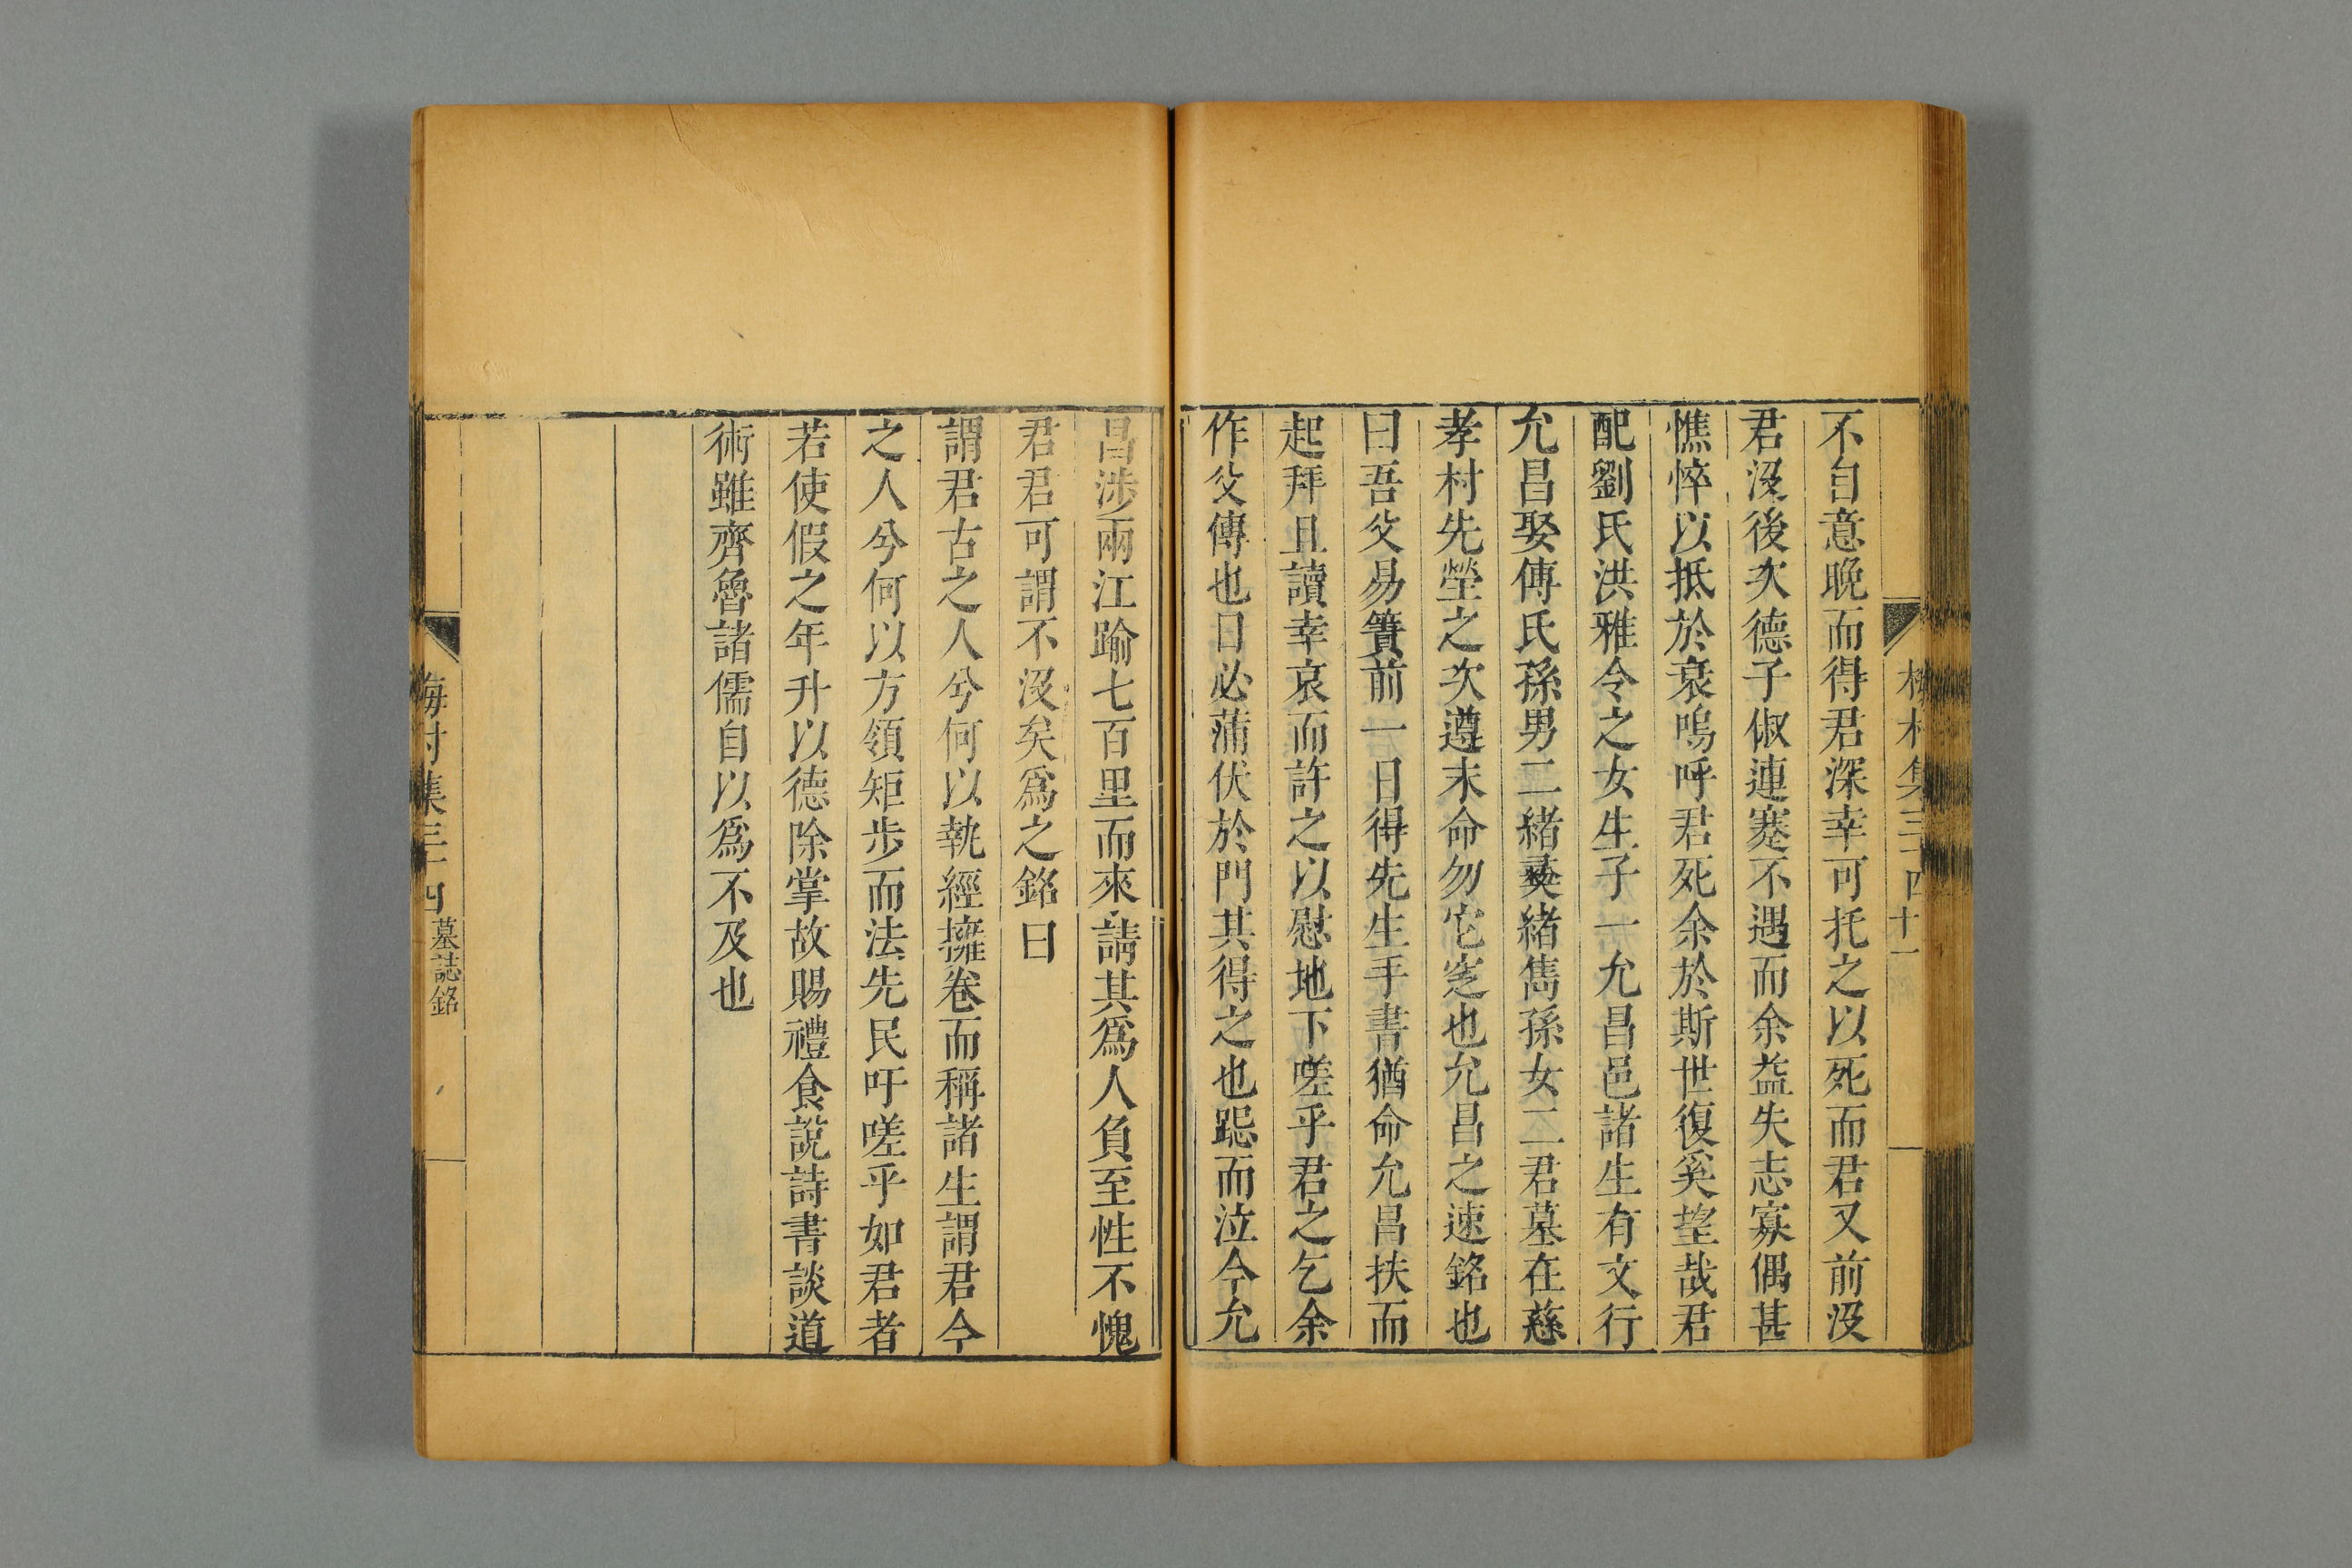 梅村集三十四 十一
不自意晚而得君深幸可托之以死而君又前沒
君沒後次德子俶連蹇不遇而余益失志寡偶甚
憔悴以抵於衰嗚呼君死余於斯世復奚望哉君
配劉氏洪雅令之女生子一允昌邑諸生有文行
允昌娶傅氏孫男二緒彛緒雋孫女二君墓在慈
孝村先塋之次遵末命勿它窆也允昌之速銘也
曰吾父易簀前一日得先生手書猶命允昌扶而
起拜且讀幸哀而許之以慰地下嗟乎君之乞余
作父傳也日必蒲伏於門其得之也跽而泣今允
昌涉兩江踰七百里而來請其爲人負至性不愧
君君可謂不沒矣爲之銘曰
謂君古之人兮何以執經擁卷而稱諸生謂君今
之人兮何以方領矩步而法先民吁嗟乎如君者
若使假之年升以德除掌故賜禮食說詩書談道
術雖齊魯諸儒自以爲不及也
梅村集三十四 墓誌銘